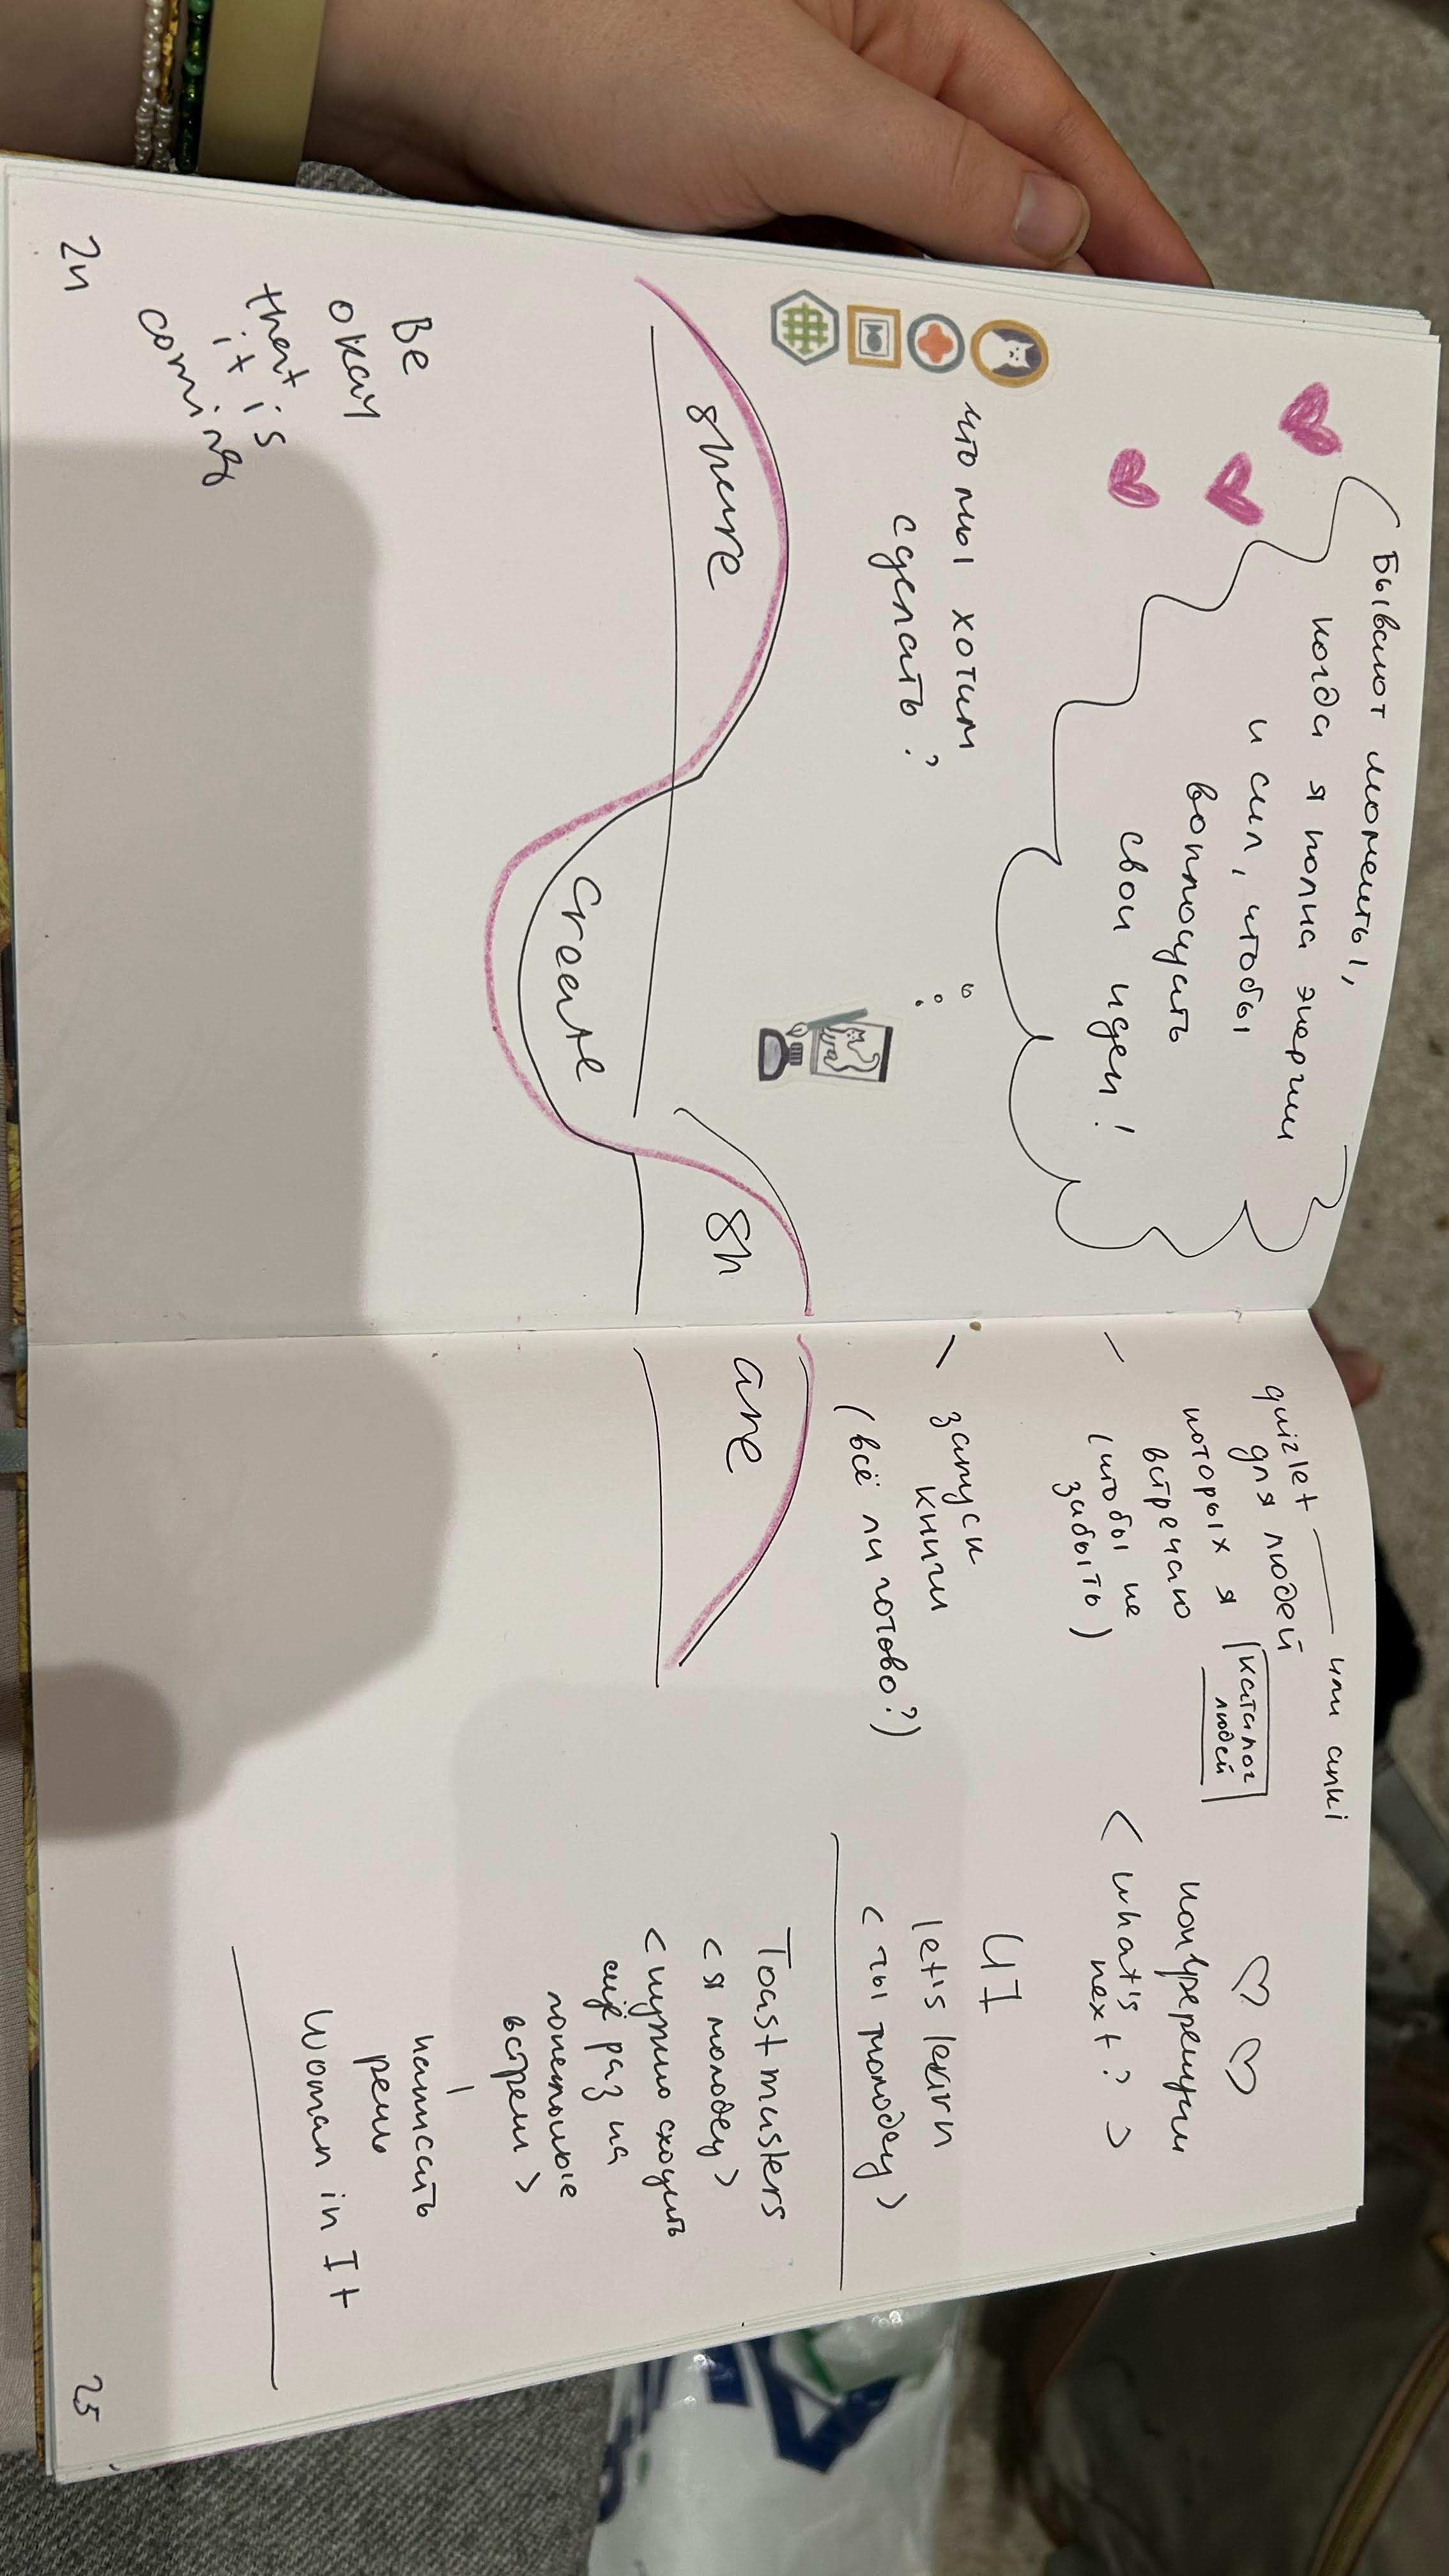 Бывают моменты,
когда я полна энергии
и сил, чтобы
воплощать
свои идеи!
что мы хотим
сделать?
share
create
sh
Be
okay
that is
it
coming
24
quizlet — или anki
для людей
которых я
встречаю
(чтобы не
забыть)
каталог
людей
– запуск
книги
(всё ли готово?)
are
конференции
< what's
next? >
UI
let's learn
< ты молодец >
Toastmasters
< я молодец >
< нужно сходить
ещё раз на
встречи >
написать
речь
Woman in It
25